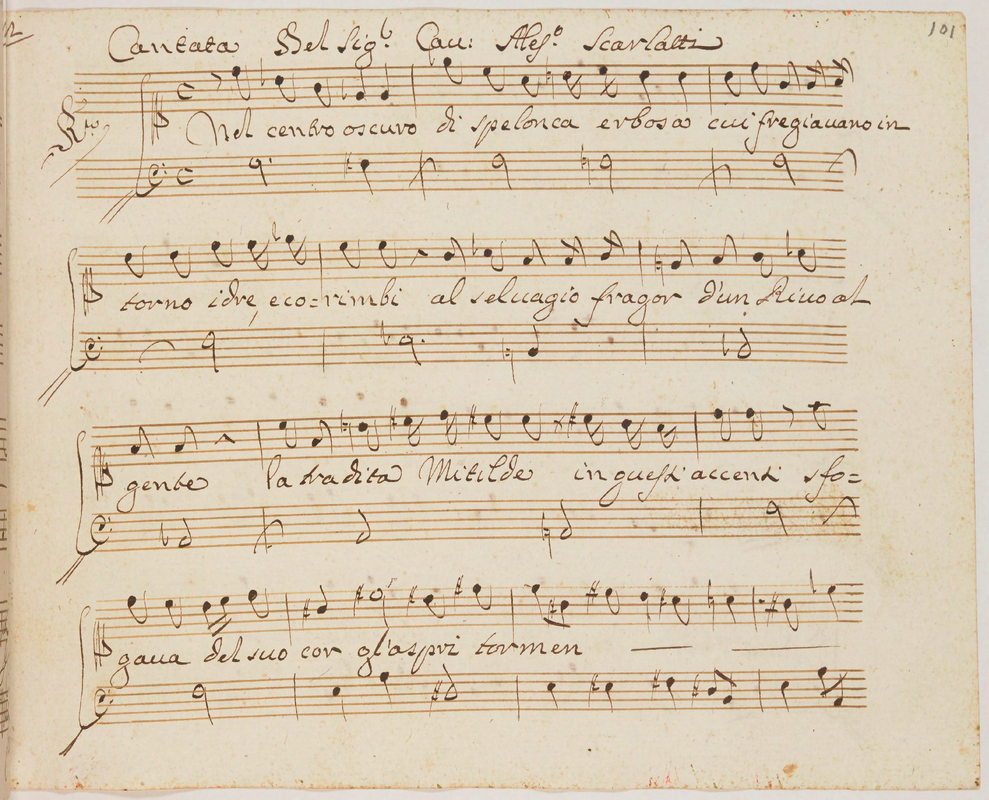 101
Cantata Del Sig.r Cau: Aless.o Scarlatti
R.to
Nel centro oscuro di spelonca erbosa cui fregiauano in
torno idre, e co=rimbi al seluagio fragor d'un Riuo al
gente la tradita Mitilde in questi accenti sfo=
gaua del suo cor gl'aspri tormen